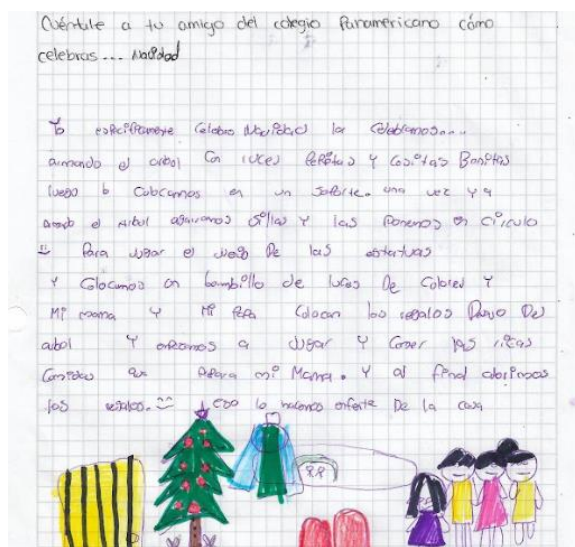 Cuéntale a tu amigo del colegio Panamericano cómo
celebras... Navidad
Yo específicamente Celebro Navidad la Celebramos...
armando el arbol Con luces Pepitas Y Cositas Bonitas
luego lo Colocamos en un Soporte. una vez ya
armado el Arbol agarramos Sillas Y las Ponemos en Circulo
Para Jugar el Juego De las estatuas
Y Colocamos un bombillo de luces De Colores Y
Mi mama Y Mi Papa Colocan los regalos Devajo Del
arbol Y enpezamos a Jugar Y Comer las ricas
Comidas que Prepara mi Mama. Y al final abrimos
los regalos. eso lo hacemos enfrente De la casa